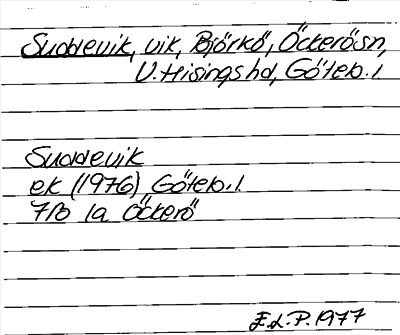 Suddevik, vik, Björkö, Öckerö sn,
V. Hisings hd, Göteb. l
Suddevik
ek (1976) Göteb. l.
7B 1a Öckerö
E.L.P. 1977